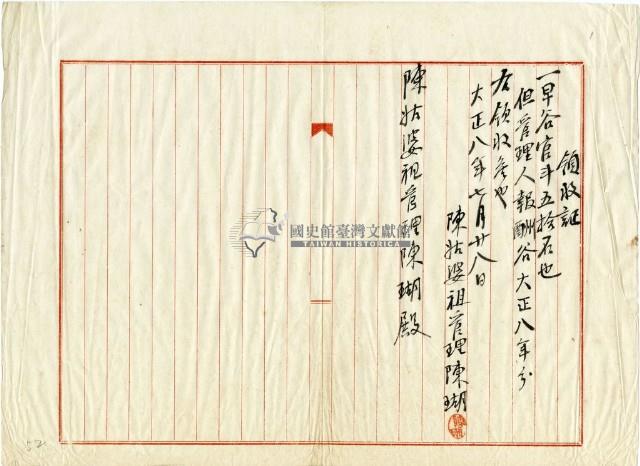 領收証
一早谷官斗五拾石也
但管理人報酬谷大正八年分
右領收候也
大正八年七月廿八日
陳姑婆祖管理陳瑚
陳姑婆祖管理陳瑚殿
國史館臺灣文獻館
TAIWAN HISTORICA
52